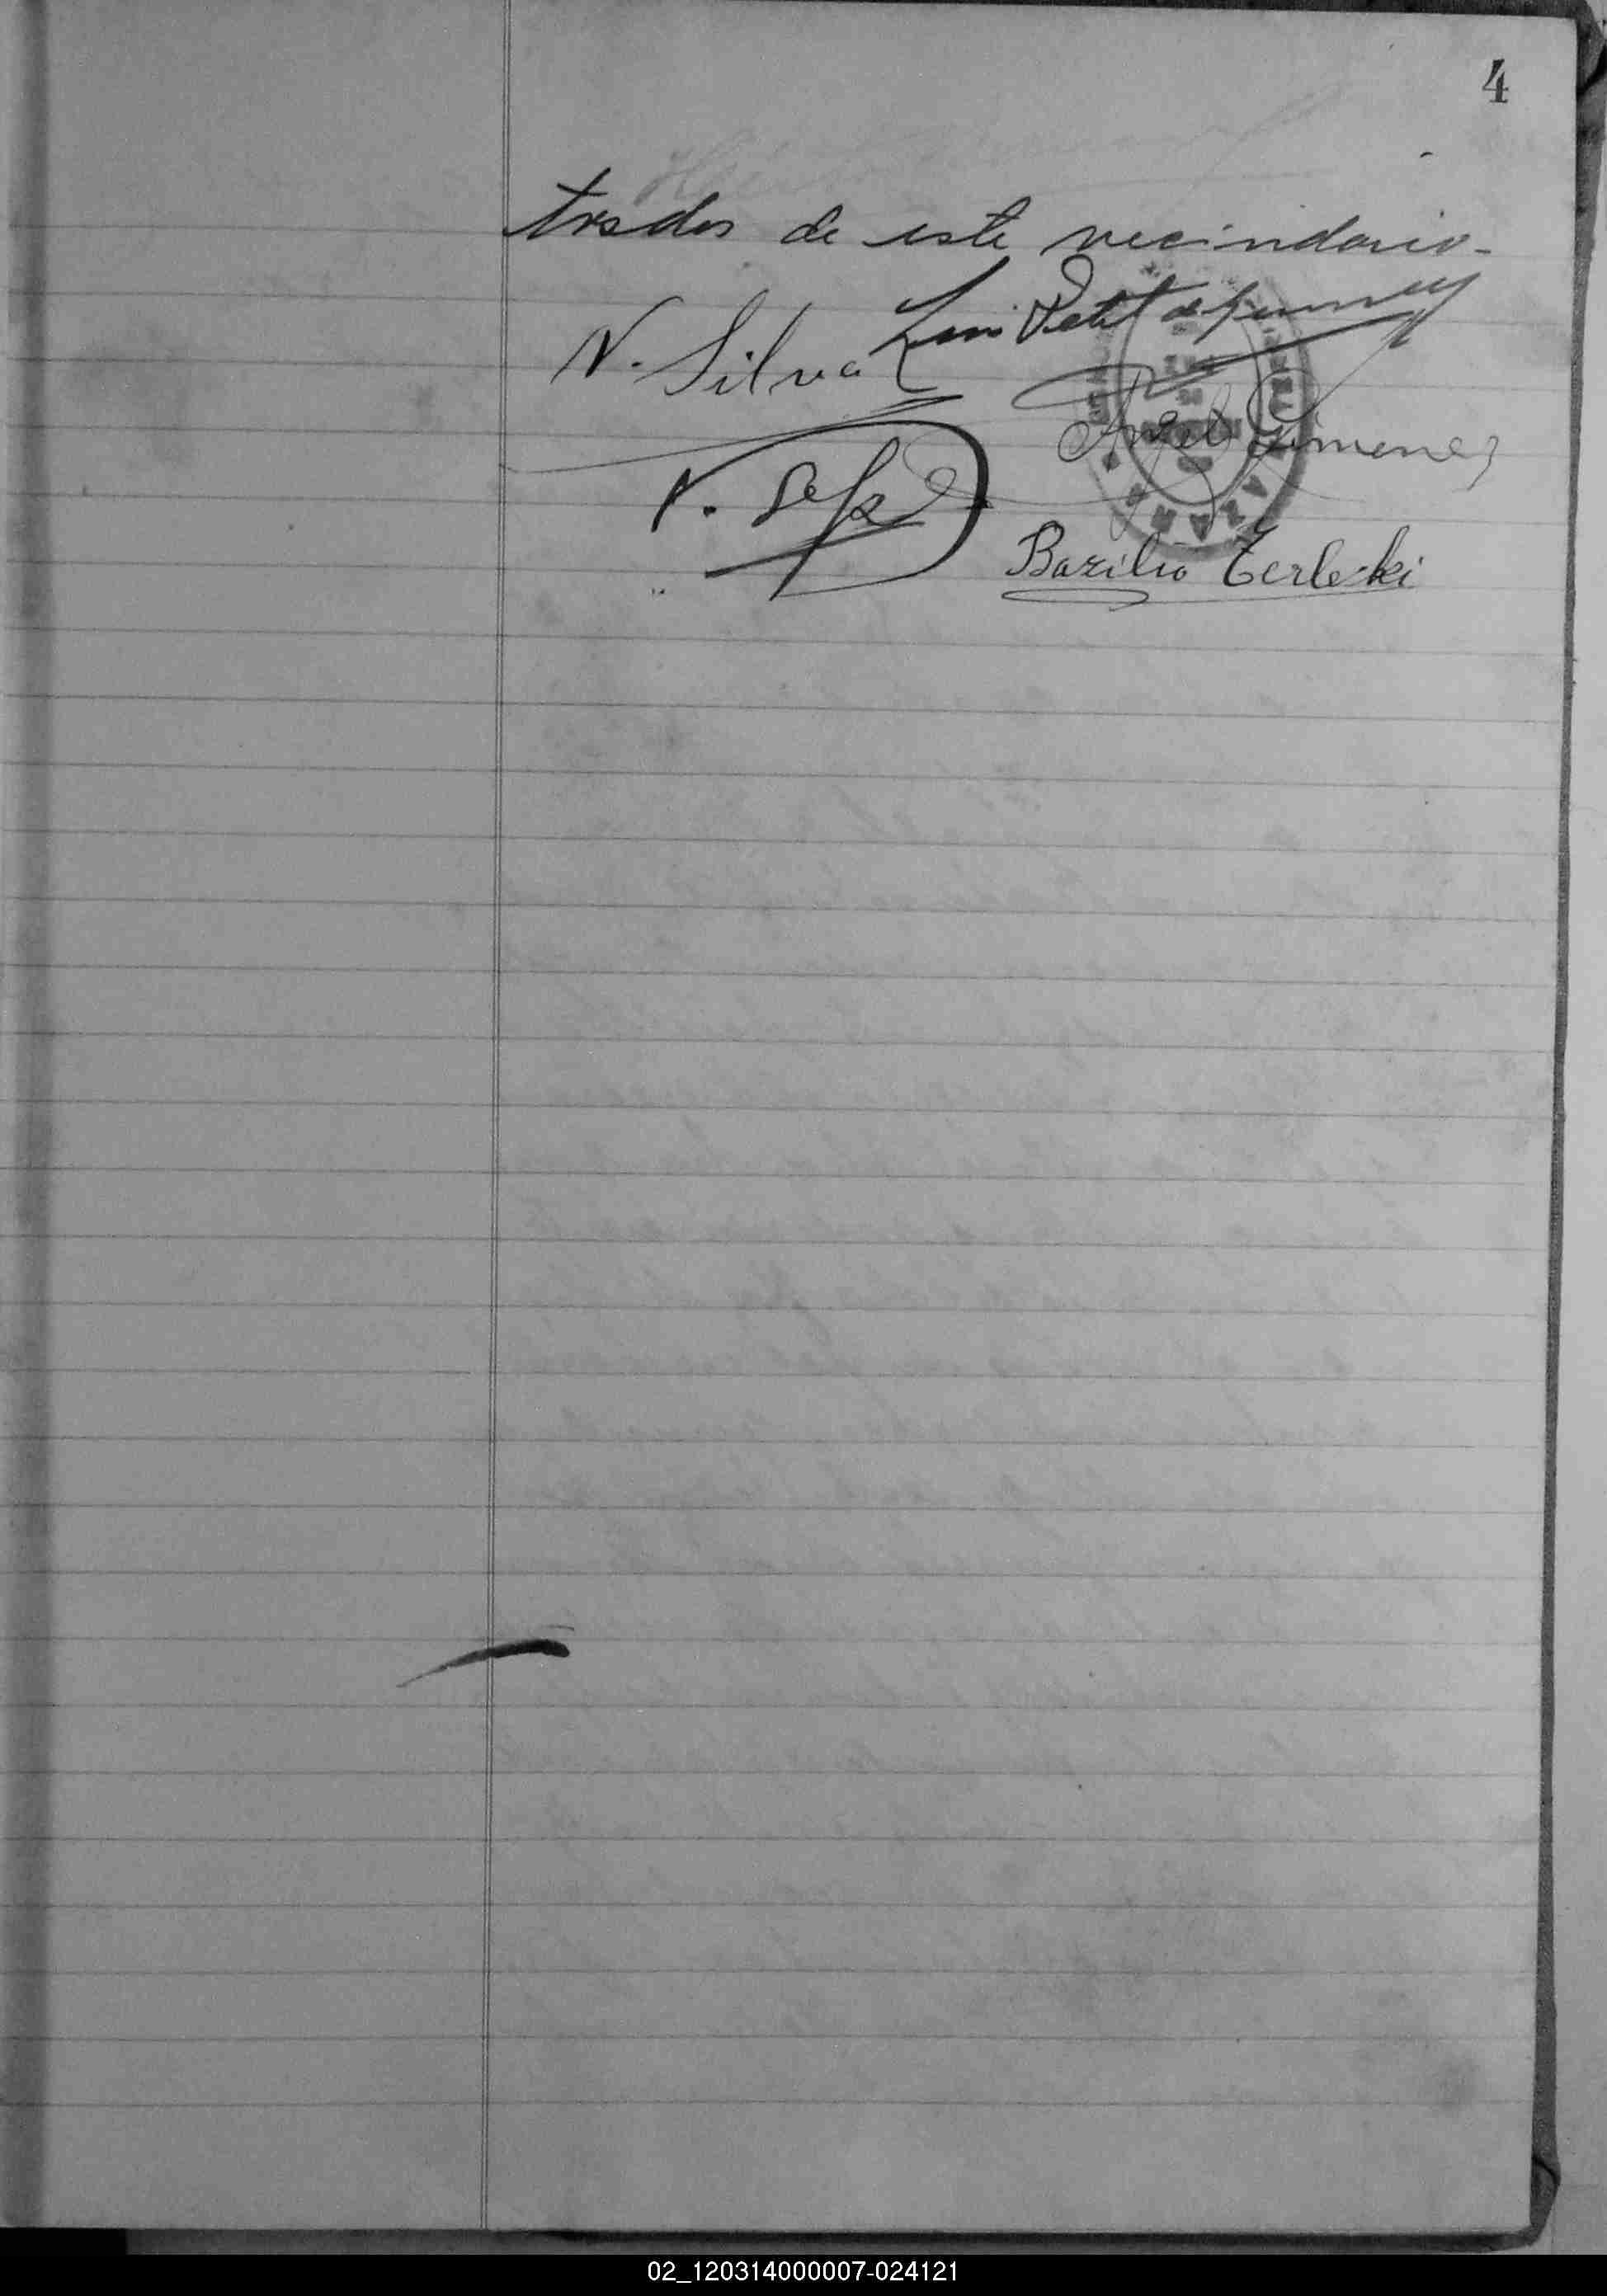 4
trados de este vecindario-
N. Silva Luis Petit de
Angel Gimenez
N.
Bazilio Terlecki
JUZ
DE
PAZ
02_120314000007-024121